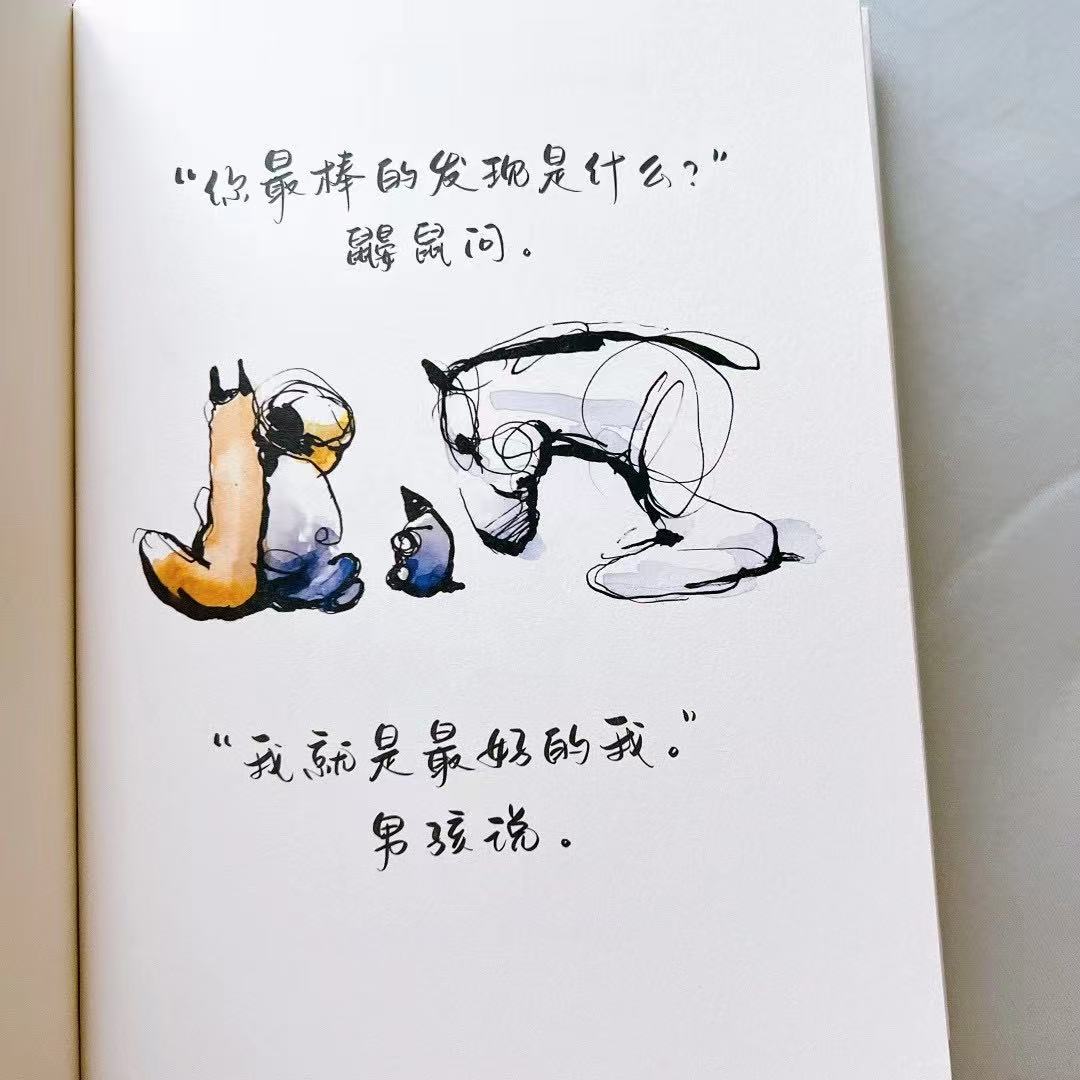 “你最棒的发现是什么？”
鼹鼠问。
“我就是最好的我。”
男孩说。